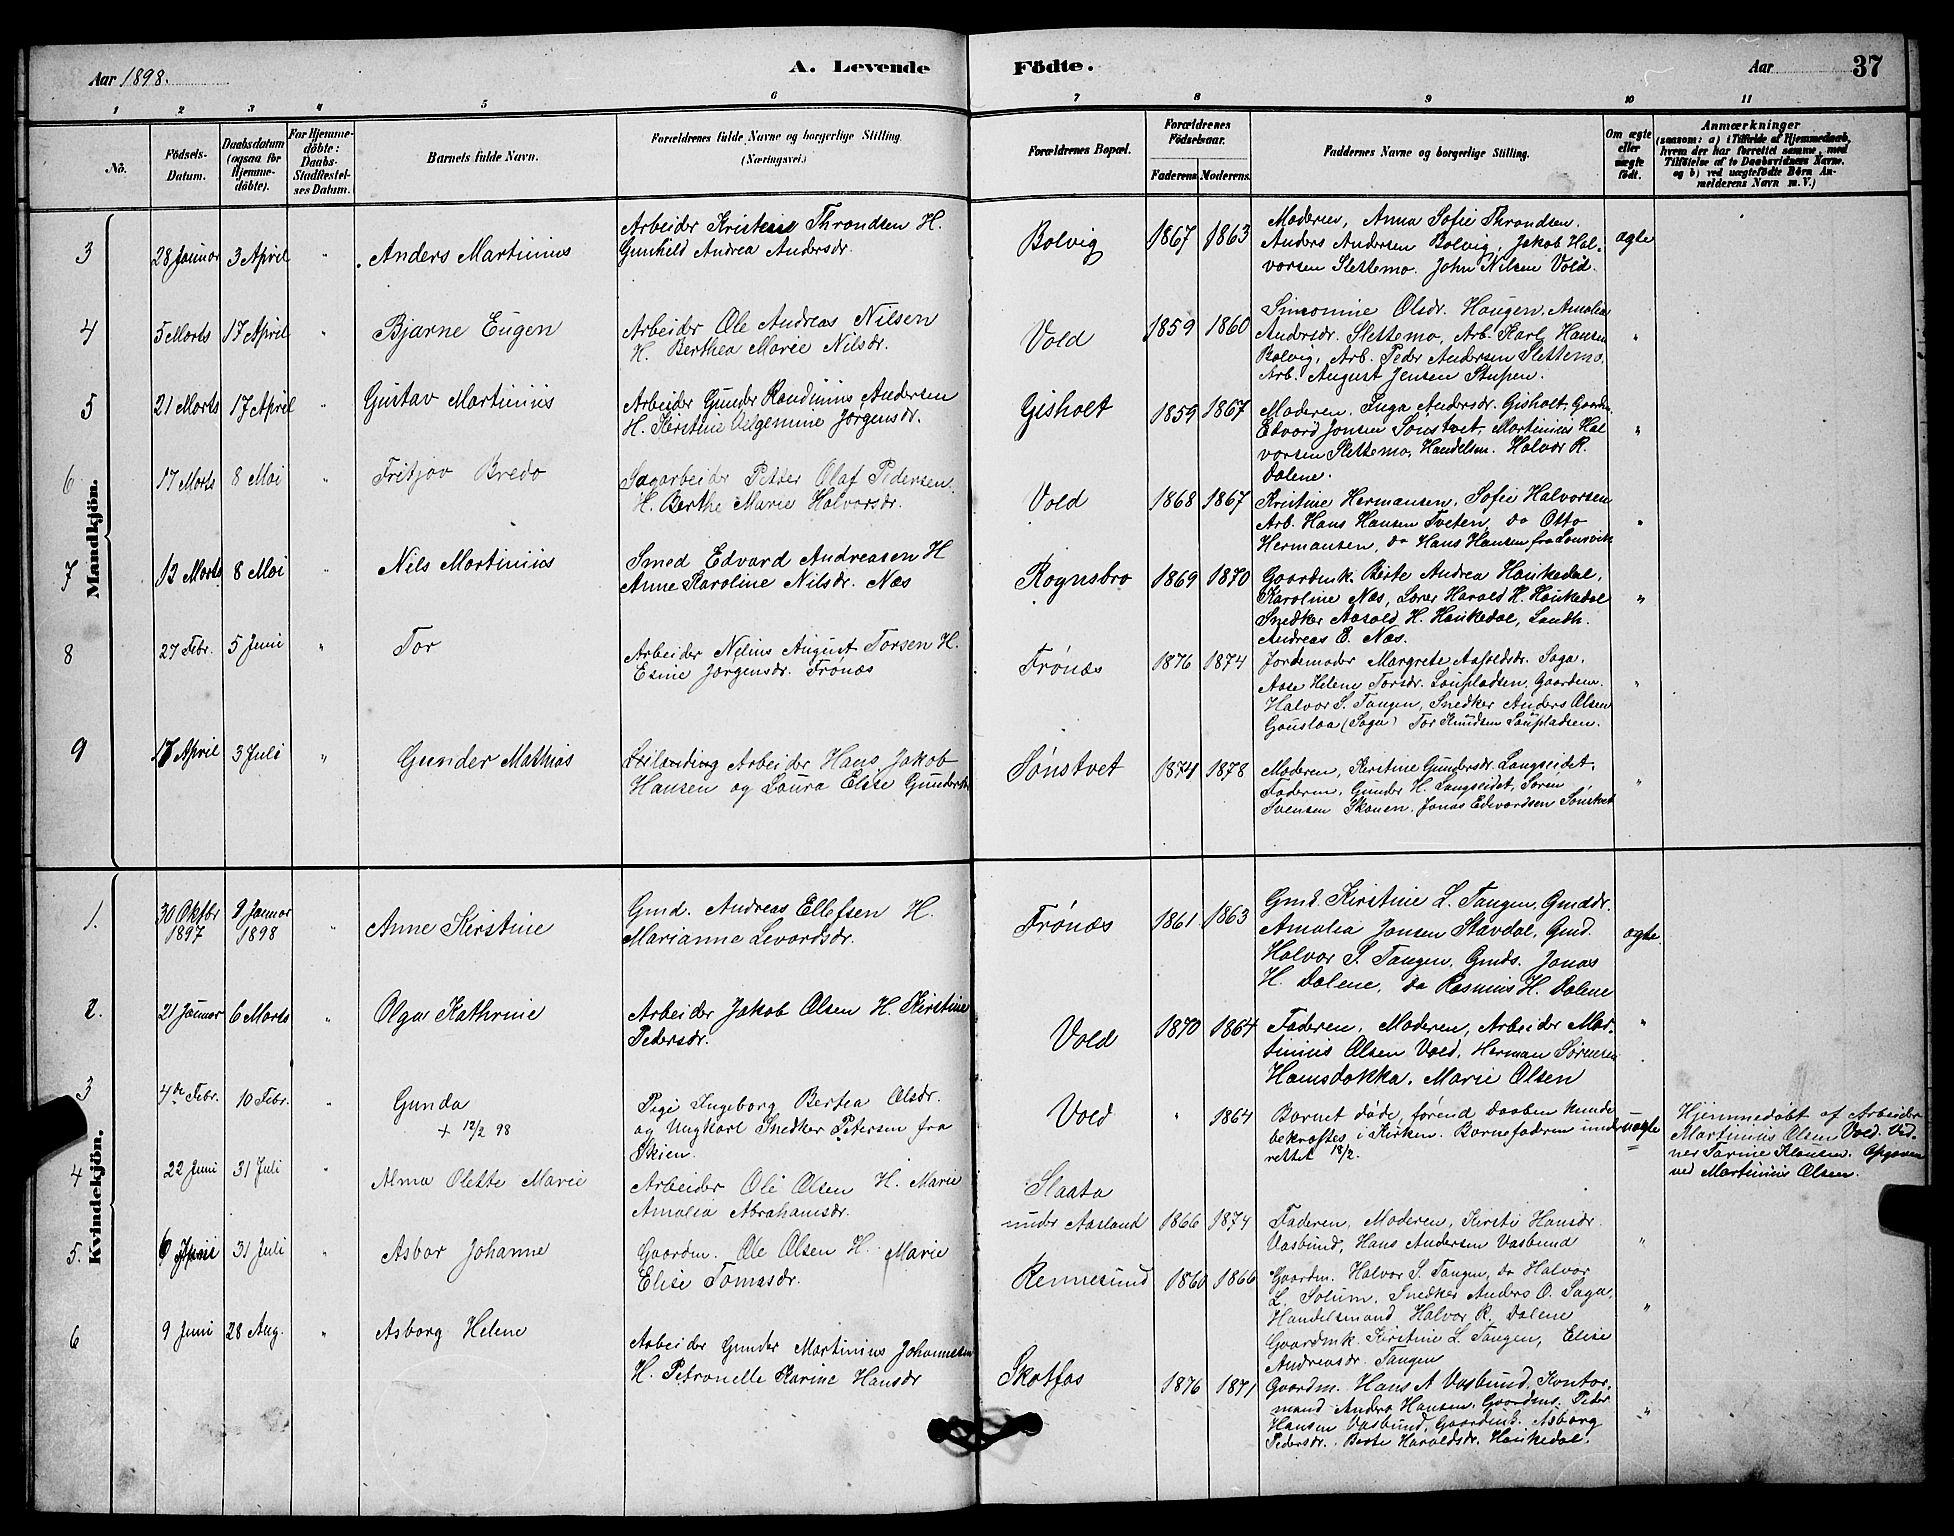 Aar 1898.
A. Levende
Födte.
Aar
37
1 2 3 4 5 6 7 8 9 10 11
No.
Födsels-
Datum.
Daabsdatum
(ogsaa for
Hjemme-
döbte).
For Hjemme-
döbte:
Daabs-
Stadfæstel-
ses Datum.
Barnets fulde Navn.
Forældrenes fulde Navne og borgerlige Stilling
(Næringsvei.)
Forældrenes Bopæl.
Forældrenes
Födselsaar.
Faderens Moderens.
Faddernes Navne og borgerlige Stilling.
Om ægte
eller
uægte
födt.
Anmærkninger
(saasom: a) i Tilfælde af Hjemmedaab,
hvem der har forrettet samme, med
Tilföielse af to Daabsvidners Navne.
og b) ved uægtefödte Börn An-
melderens Navn m. V.)
Mandkjön.
3
28 Januar
3 April
"
Anders Martinius
Arbeider Kristen Throndsen H.
Gunhild Andrea Andersdr.
Bolvig
1867
1863
Moderen, Anna Sofie Throndsen.
Anders Andersen Bolvig, Jakob Hal-
vorsen Slettemo. John Nilsen Vold.
ægte
4
5 Marts
17 April
"
Bjarne Eugen
Arbeider Ole Andreas Nilsen
H. Berthea Marie Nilsdr.
Vold
1859
1860
Simonine Olsdr. Haugen, Amalia
Andersdr. Slettemo, Arb. Karl Hansen
Bolvig, Arb. Peder Andersen Slettemo.
Arb. August Jensen Stupen.
"
5
21 Marts
17 April
"
Gustav Martinius
Arbeider Gunder Randinius Andersen
H. Kirstine Jørgensdr.
Gisholt
1859
1867
Moderen. Inga Andersdr. Gisholt, Gaardm.
Edvard Jonsen Sønstvet, Martinius Hal
vorsen Slettemo, Handelsm. Halvor R.
Dalene.
"
6
17 Marts
8 Mai
Fritjov Bredo
Sagarbeider Petter Olaf Pedersen.
H. Berthe Marie Halvorsdr.
Vold
1868
1867
Kristine Hermansen, Sofie Halvorsen
Arb. Hans Hansen Tveten, do Otto
Hermansen, do Hans Hansen fra
"
7
13 Marts
8 Mai
"
Nils Martinius
Smed Edvard Andreasen H
Anne Karoline Nilsdr. Næs
Rognsbro
1869
1870
Gaardmk. Birte Andrea Haukedal,
Karoline Næs, Lærer Harald H. Haukedal
Snedker Aasold H. Haukedal, Landh.
Andreas E. Næs.
"
8
27 Febr.
5 Juni
"
Tor
Arbeider Nilius August Torsen H.
Esine Jørgensdr. Frønæs
Frønæs
1876
1874
Jordemoder Margrete Saga.
Aase Helene Torsdr. Laupladsen, Gaardm.
Halvor S. Tangen, Snedker Anders Olsen
Gouslaa (Saga) Tor Knudsen Laupladsen.
"
9
17 April
3 Juli
"
Gunder Mathias
Leilænding Arbeider Hans Jakob
Hansen og Laura Elise Gundersdr.
Sønstvet
1874
1878
Moderen, Kirstine Gundersdr. Langseidet,
Faderen, Gunder H. Langseidet, Søren
Svensen Skauen. Jonas Edvardsen Sønstvet
"
Kvindekjön.
1.
30 Oktbr
1897
9 Januar
1898
"
Anne Kirstine
Gmd. Andreas Ellefsen H.
Marianne Levordsdr.
Frønæs
1861
1863
Gmd. Kirstine L. Tangen, Gmddr.
Amalia Jonsen Stavdal, Gmd.
Halvor S. Tangen, Gmds. Jonas
H. Dalene, do Rasmus H. Dalene
ægte
2.
21 Januar
6 Marts
"
Olga Kathrine
Arbeider Jakob Olsen H. Kirstine
Pedersdr.
Vold
1870
1864
Faderen, Moderen, Arbeider Mar-
tinius Olsen Vold, Herman Sørensen
Hamsdokka. Marie Olsen
"
3
4de Febr.
10 Febr.
"
Gunda
+ 12/2 98
Pige Ingeborg Bertea Olsdr.
og Ungkarl Snedker Petersen fra
Skien.
Vold
"
1864
Barnet døde, førend Daaben kunde
bekræftes i Kirken. Barnefaderen under-
rettet 18/2.
uægte
Hjemmedøbt af Arbeider
Martinius Olsen Vold. Vid-
ner Tarine Klausen. Opgaven
ved Martinius Olsen.
4
22 Juni
31 Juli
"
Alma Olette Marie
Arbeider Ole Olsen H. Marie
Amalia Abrahamsdr.
Slaata
under Aasland
1866
1874
Faderen, Moderen, Kirsti Hansdr.
Vasbund, Hans Andersen Vasbund
"
5.
31 Juli
"
Asbor Johanne
Gaardm. Ole Olsen H. Marie
Elise Tomasdr.
Rennesund
1860
1866
Gaardm. Halvor S. Tangen, do Halvor
L. Solum, Snedker Anders O. Saga,
Handelsmand Halvor R. Dalene
Gaardmk. Kirstine L. Tangen, Elise
Andreasdr. Tangen
"
6
9 Juni
28 Aug.
"
Asborg Helene
Arbeider Gunder Martinius Johannesen
H. Petronelle Karine Hansdr
Skotfos
1876
1871
Gaardm. Hans A Vasbund, Kontor-
mand Anders Hansen, Gaardms. Peder
Hansen Vasbund, Gaardmk. Asborg
Pedersdr. Berte Haraldsdr. Haukedal.
"